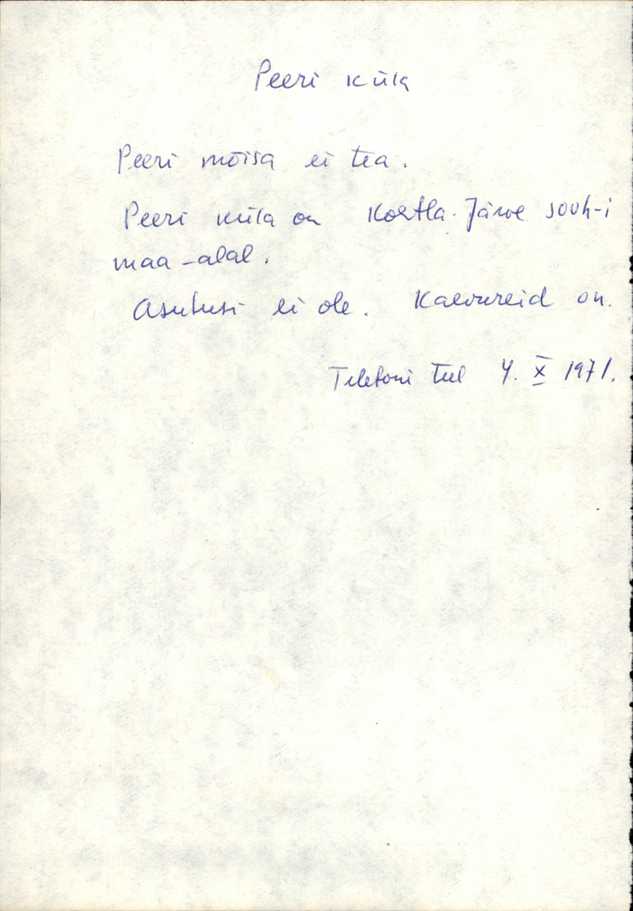 Peeri küla
Peeri mõisa ei tea.
Peeri küla on Kohtla-Järve sovh-i
maa-alal.
Asutusi ei ole. Kaevureid on.
Telefoni teel 4. X 1971.